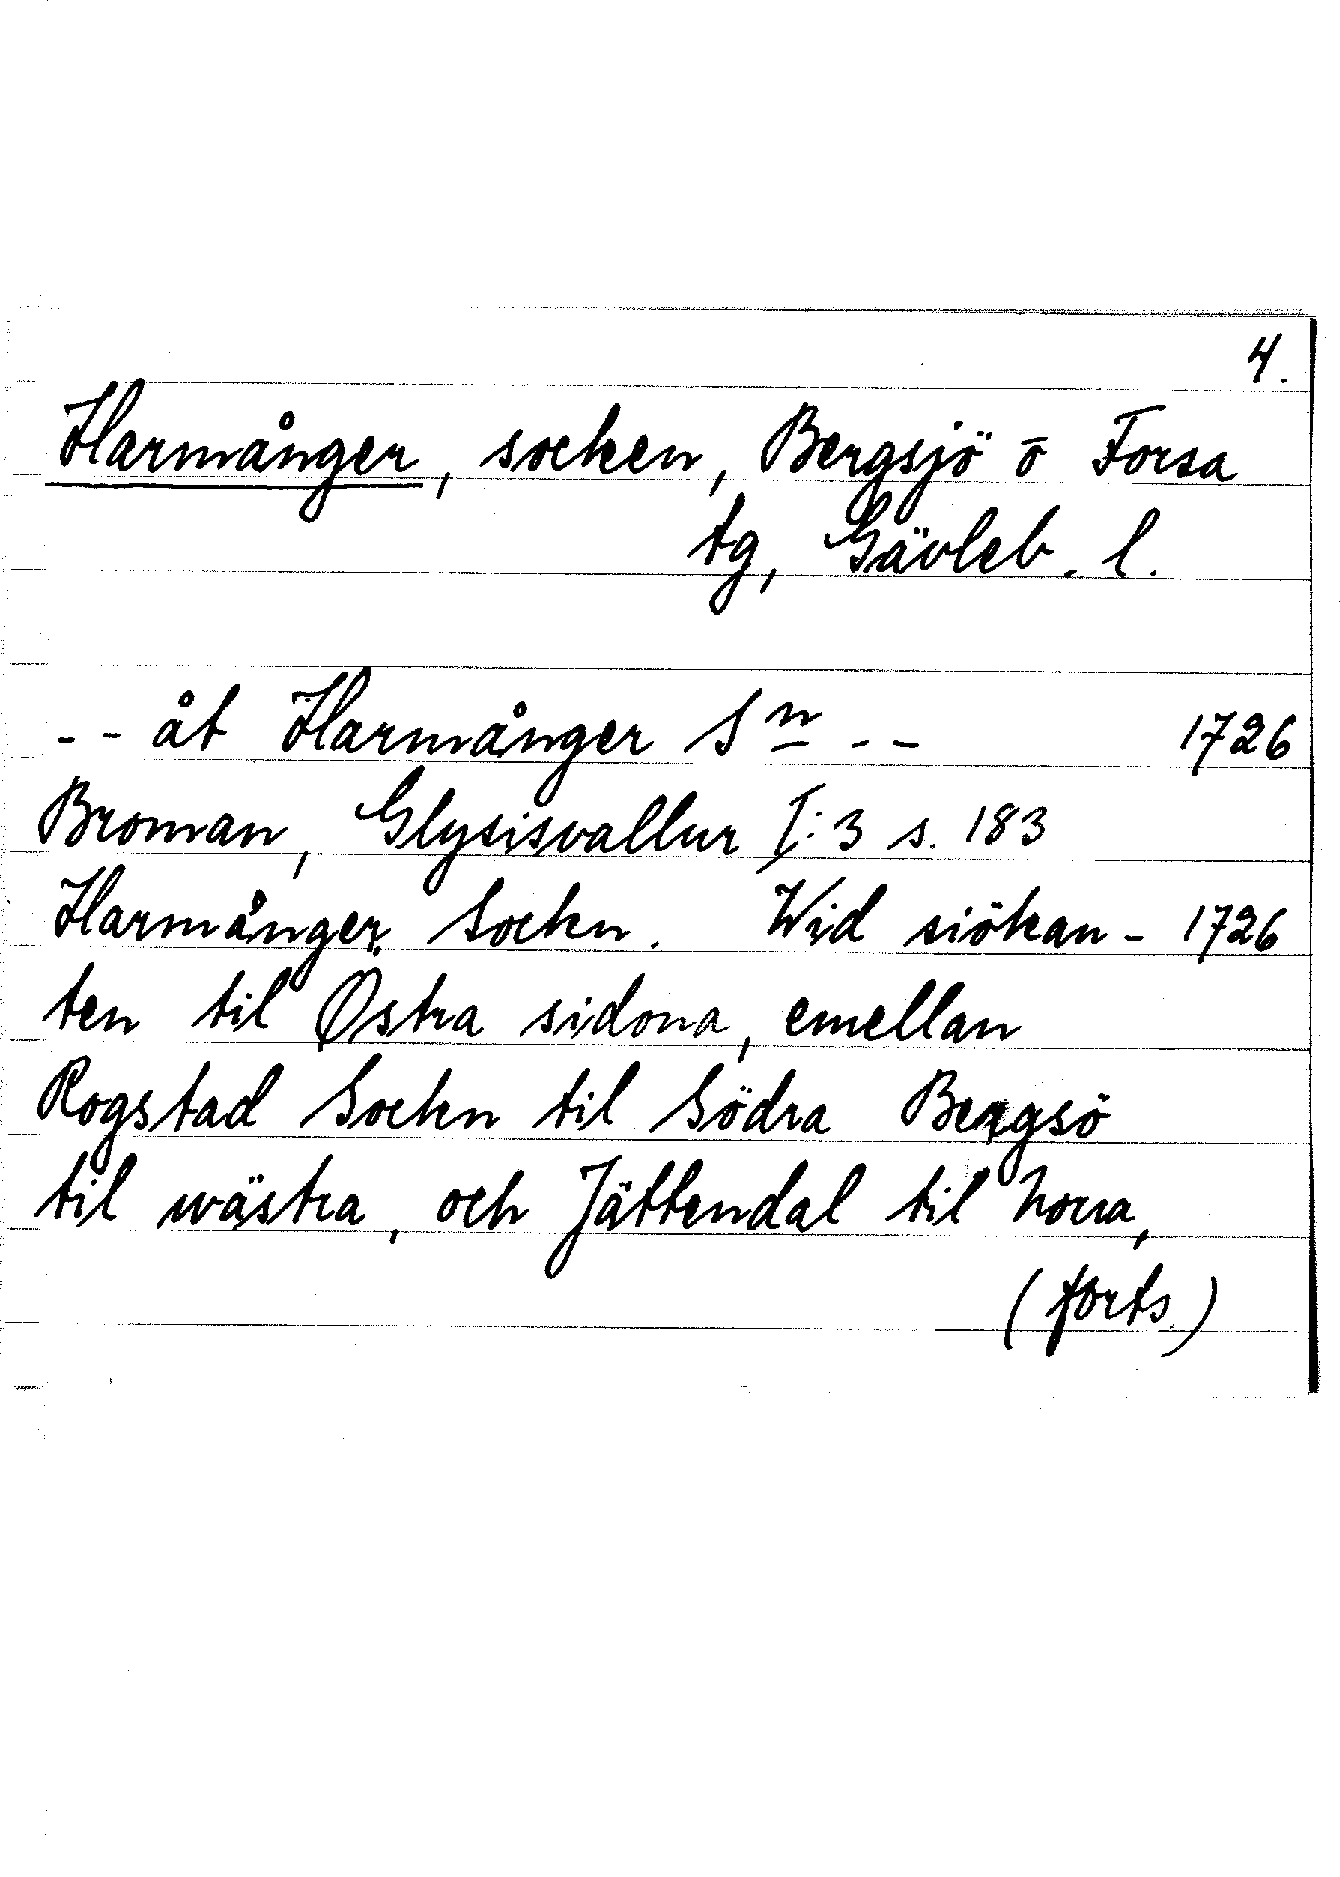 4.
Harmånger, socken, Bergsjö o Forsa
tg, Gävleb. l.
-- åt Harmånger Sn -- 1726
Broman, Glysisvallur I:3 s. 183
Harmånger Sockn. Wid siökan- 1726
ten til Østra sidona, emellan
Rogstad Sockn til Södra Bergsö
til wästra, och Jättendal til Norra,
(forts.)